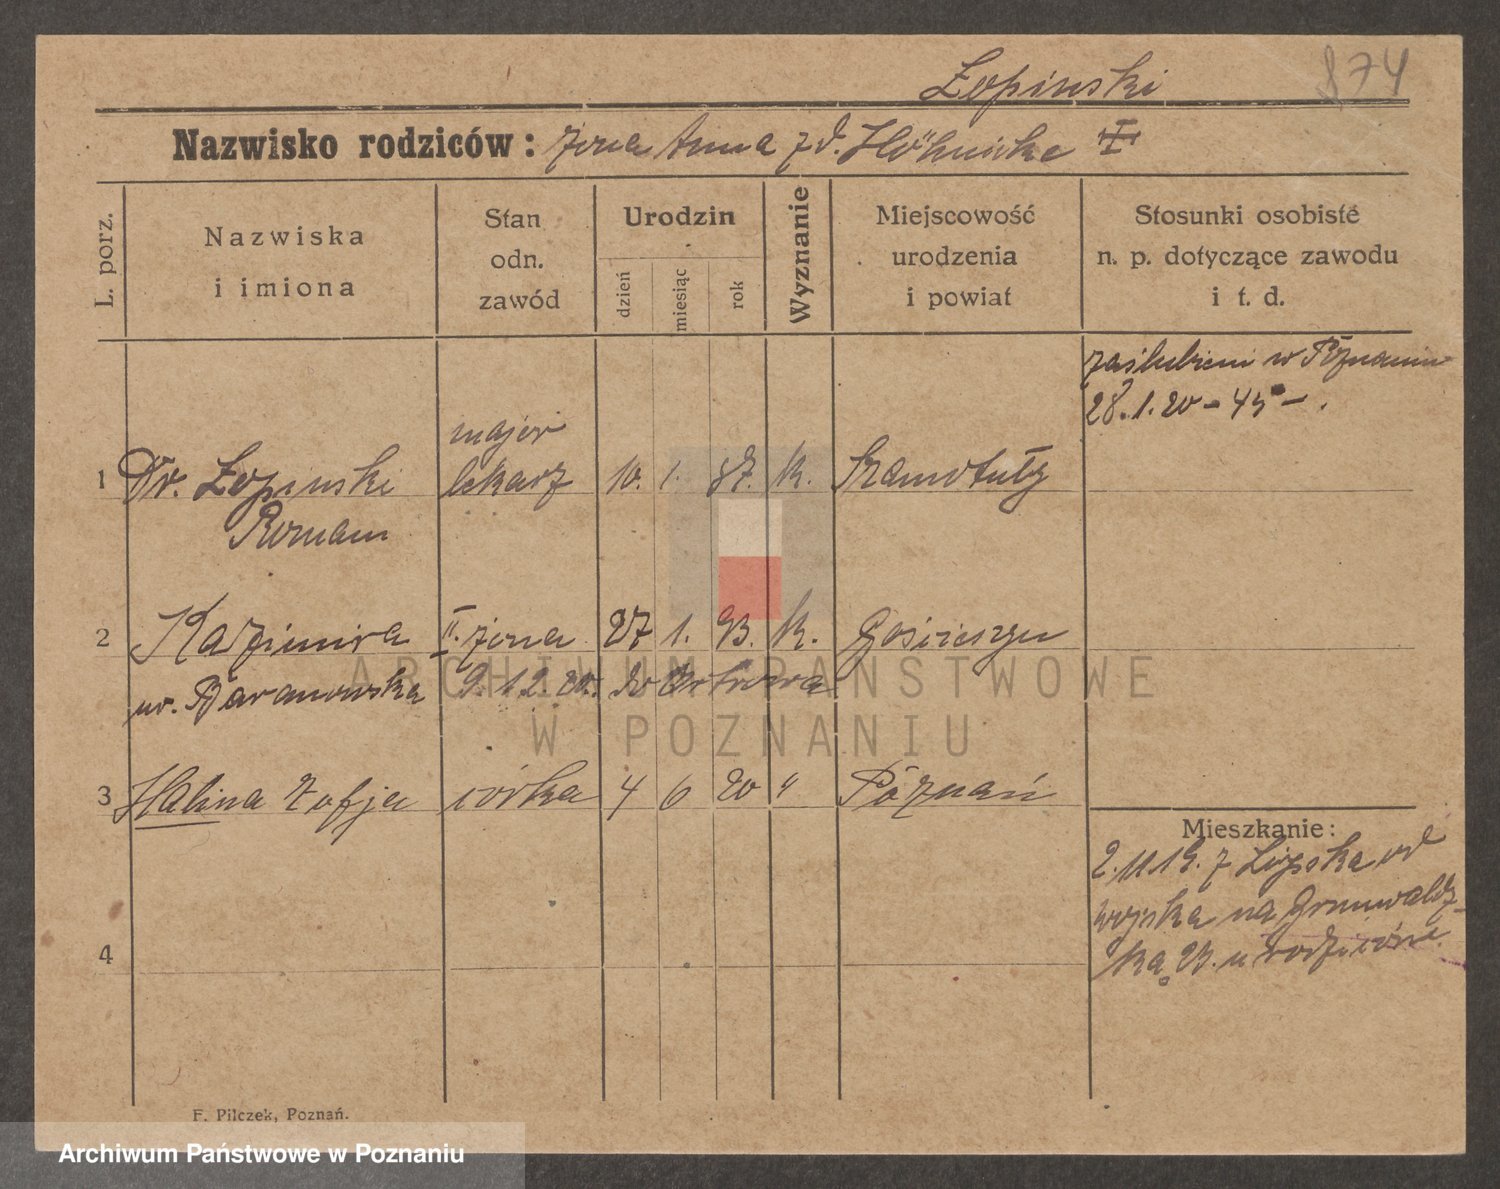 Łopinski 874
Nazwisko rodziców: żona Anna zd. Höhnicke I
L. porz.
Nazwiska
i imiona
Stan
odn.
zawód
Urodzin
dzień
miesiąc
rok
Wyznanie
Miejscowość
urodzenia
i powiat
Stosunki osobiste
n. p. dotyczące zawodu
i t. d.
zaślubieni w Poznaniu
28.1.20 – 45 – .
major
1 Dr. Łopinski lekarz 10. 1. 87. k. Szamotuły
Roman
2 Kazimira II. żona 27 1. 93. k. Gościeszyn
ur. Baranowska 9.12.20. w Ostrowa
3 Halina Zofja córka 4 6 20 " Poznań
Mieszkanie:
2.11.19. z Lipska od
wojska na Grunwaldz-
ką 23. u rodziców.
4
F. Pilczek, Poznań.
ARCHIWUM PAŃSTWOWE
W POZNANIU
Archiwum Państwowe w Poznaniu